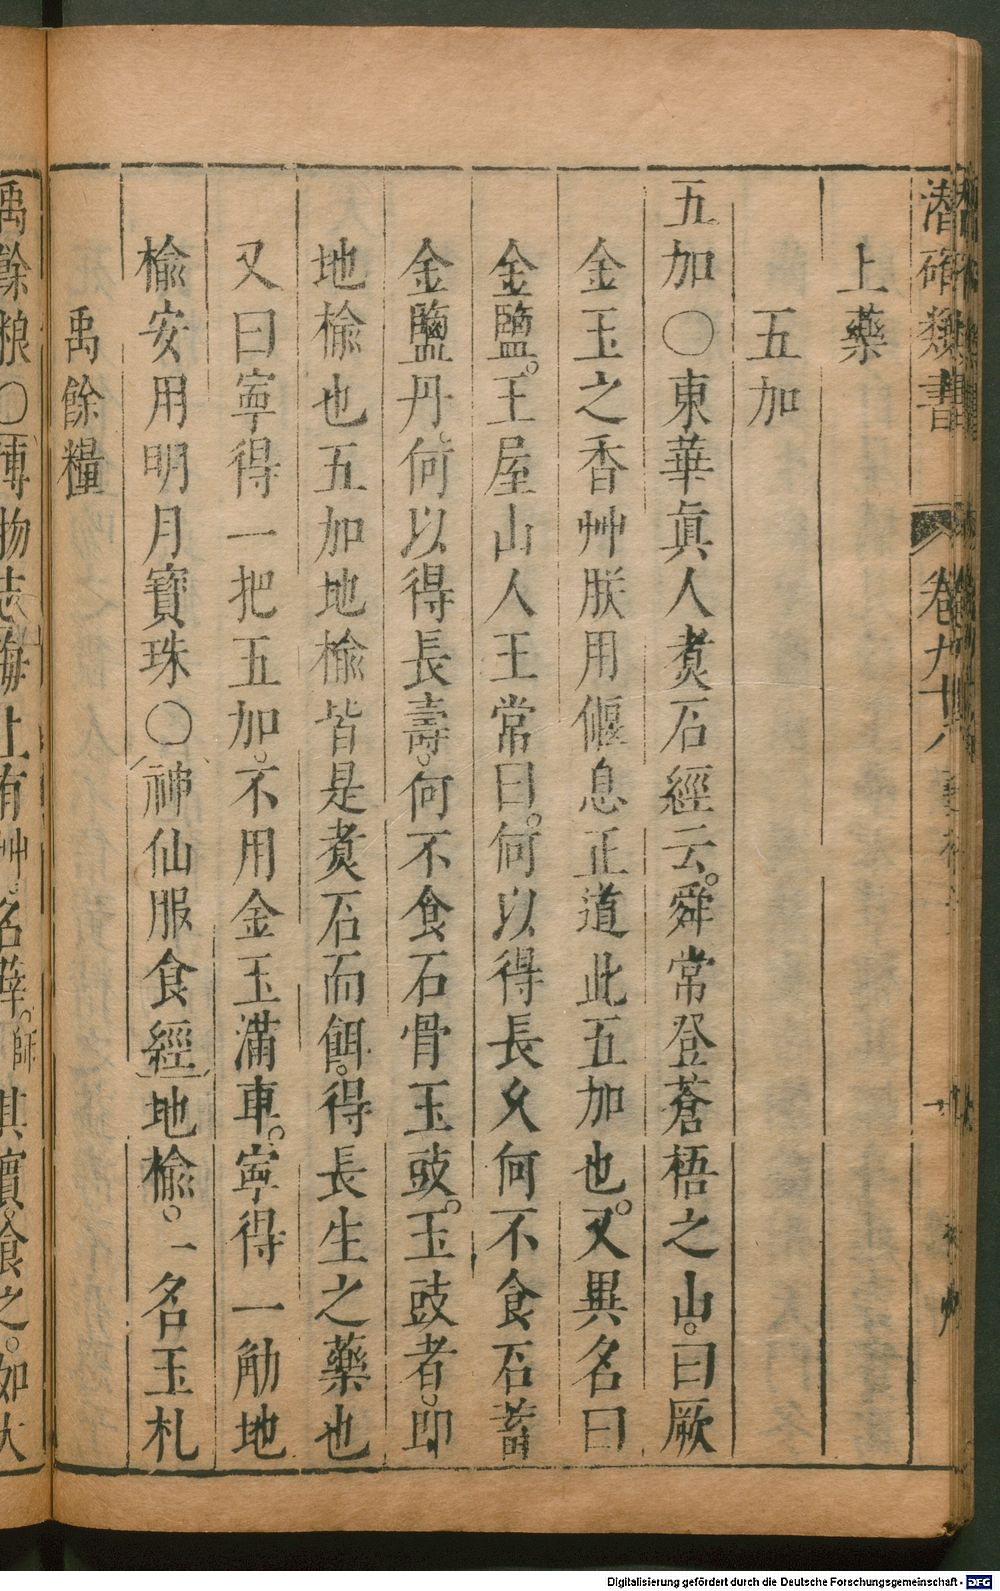 潛確類書 卷九十八
上藥
五加
五加〇東華眞人煮石經云。舜常登蒼梧之山。曰厥
金玉之香艸朕用偃息正道此五加也。又異名曰
金鹽。王屋山人王常曰。何以得長久何不食石蓄
金鹽丹。何以得長壽。何不食石骨玉豉。玉豉者。即
地楡也五加地楡皆是煮石而餌。得長生之藥也
又曰寧得一把五加。不用金玉滿車。寧得一觔地
楡安用明月寶珠〇神仙服食經地楡。一名玉札
禹餘糧
禹餘粮〇博物志海上有艸。名蒒。師其實。食之。如大
Digitalisierung gefördert durch die Deutsche Forschungsgemeinschaft - DFG